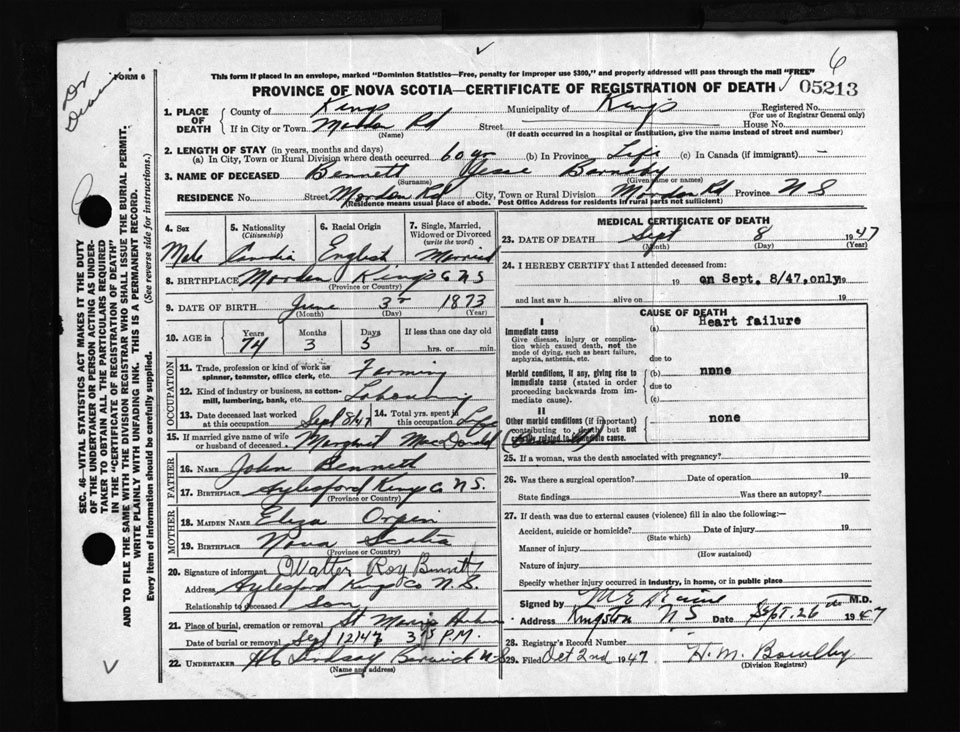 6
Dr
FORM 6
This form if placed in an envelope, marked "Dominion Statistics—Free, penalty for improper use $300," and properly addressed will pass through the mail "FREE"
PROVINCE OF NOVA SCOTIA—CERTIFICATE OF REGISTRATION OF DEATH
05213
1. PLACE OF DEATH County of Kings Municipality of Kings Registered No.
(For use of Registrar General only)
If in City or Town Rd Street House No.
(Name) (If death occurred in a hospital or institution, give the name instead of street and number)
2. LENGTH OF STAY (in years, months and days)
(a) In City, Town or Rural Division where death occurred 60 yr (b) In Province Life (c) In Canada (if immigrant) —
3. NAME OF DECEASED Bennett Jesse Barnaby
(Surname) (Given name or names)
RESIDENCE No. Street Morden Rd City, Town or Rural Division Morden Rd Province N S
(Residence means usual place of abode. Post Office Address for residents in rural parts not sufficient)
4. Sex 5. Nationality (Citizenship) 6. Racial Origin 7. Single, Married, Widowed or Divorced (write the word)
Male English Married
8. BIRTHPLACE Morden Kings Co N S
(Province or Country)
9. DATE OF BIRTH June 3 1873
(Month) (Day) (Year)
10. AGE in Years Months Days If less than one day old
74 3 5 hrs. or min.
OCCUPATION
11. Trade, profession or kind of work as spinner, teamster, office clerk, etc. Farming
12. Kind of industry or business, as cotton-mill, lumbering, bank, etc. Labouring
13. Date deceased last worked at this occupation Sept 8/47 14. Total yrs. spent in this occupation Life
15. If married give name of wife or husband of deceased Margaret MacDonald
FATHER
16. NAME John Bennett
17. BIRTHPLACE Aylesford Kings Co N.S.
(Province or Country)
MOTHER
18. MAIDEN NAME Eliza Orpin
19. BIRTHPLACE Nova Scotia
(Province or Country)
20. Signature of informant Walter Roy Bennett
Address Aylesford Kings Co N.S.
Relationship to deceased Son
21. Place of burial, cremation or removal St Marys Auburn
Date of burial or removal Sept 12/47 3 15 P.M.
22. UNDERTAKER Lindsay Berwick N-S
(Name and address)
MEDICAL CERTIFICATE OF DEATH
23. DATE OF DEATH Sept 8 1947
(Month) (Day) (Year)
24. I HEREBY CERTIFY that I attended deceased from:
19 on Sept. 8/47, only 19
and last saw h alive on 19
CAUSE OF DEATH
I
Immediate cause (a) Heart failure
Give disease, injury or complication which caused death, not the mode of dying, such as heart failure, asphyxia, asthenia, etc.
due to
Morbid conditions, if any, giving rise to immediate cause (stated in order proceeding backwards from immediate cause). (b) none
due to
(c)
II
Other morbid conditions (if important) contributing to death but not causally related to immediate cause. none
25. If a woman, was the death associated with pregnancy?
26. Was there a surgical operation? Date of operation 19
State findings Was there an autopsy?
27. If death was due to external causes (violence) fill in also the following:—
Accident, suicide or homicide? Date of injury 19
(State which)
Manner of injury
(How sustained)
Nature of injury
Specify whether injury occurred in industry, in home, or in public place
Signed by M.D.
Address Kingston N S Date Sept. 26th 1947
28. Registrar's Record Number
29. Filed Oct 2nd 1947 H. M.
(Division Registrar)
SEC. 46—VITAL STATISTICS ACT MAKES IT THE DUTY
OF THE UNDERTAKER OR PERSON ACTING AS UNDER-
TAKER TO OBTAIN ALL THE PARTICULARS REQUIRED
IN THE "CERTIFICATE OF REGISTRATION OF DEATH"
AND TO FILE THE SAME WITH THE DIVISION REGISTRAR WHO SHALL ISSUE THE BURIAL PERMIT.
WRITE PLAINLY WITH UNFADING INK. THIS IS A PERMANENT RECORD.
Every item of information should be carefully supplied. (See reverse side for instructions.)